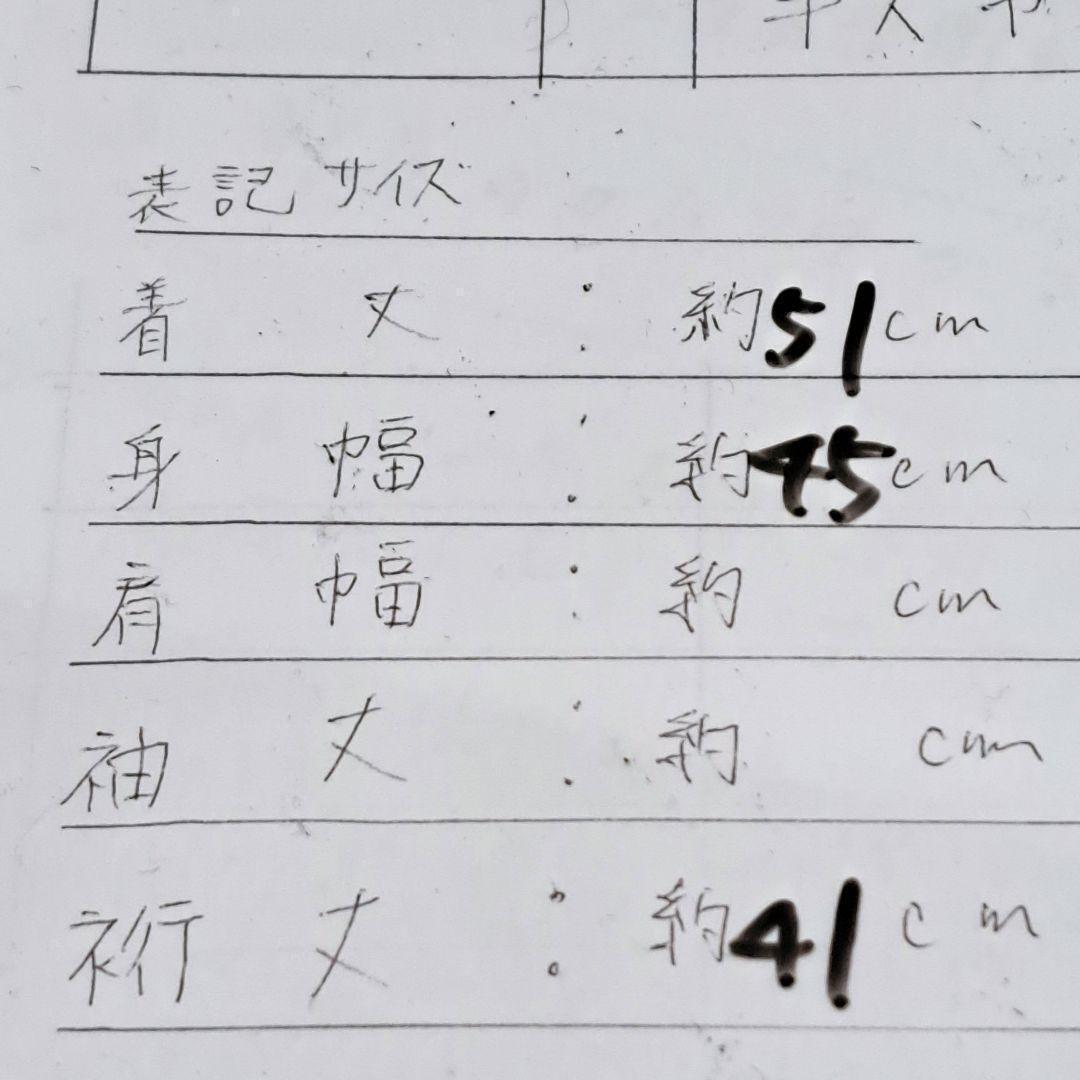 表記サイズ
着丈:約51cm
身幅:約45cm
肩幅:約 cm
袖丈:約 cm
裄丈:約41cm